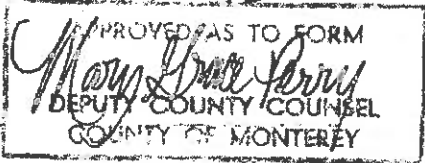 APPROVED AS TO FORM
Mary Grace Perry
DEPUTY COUNTY COUNSEL
COUNTY OF MONTEREY